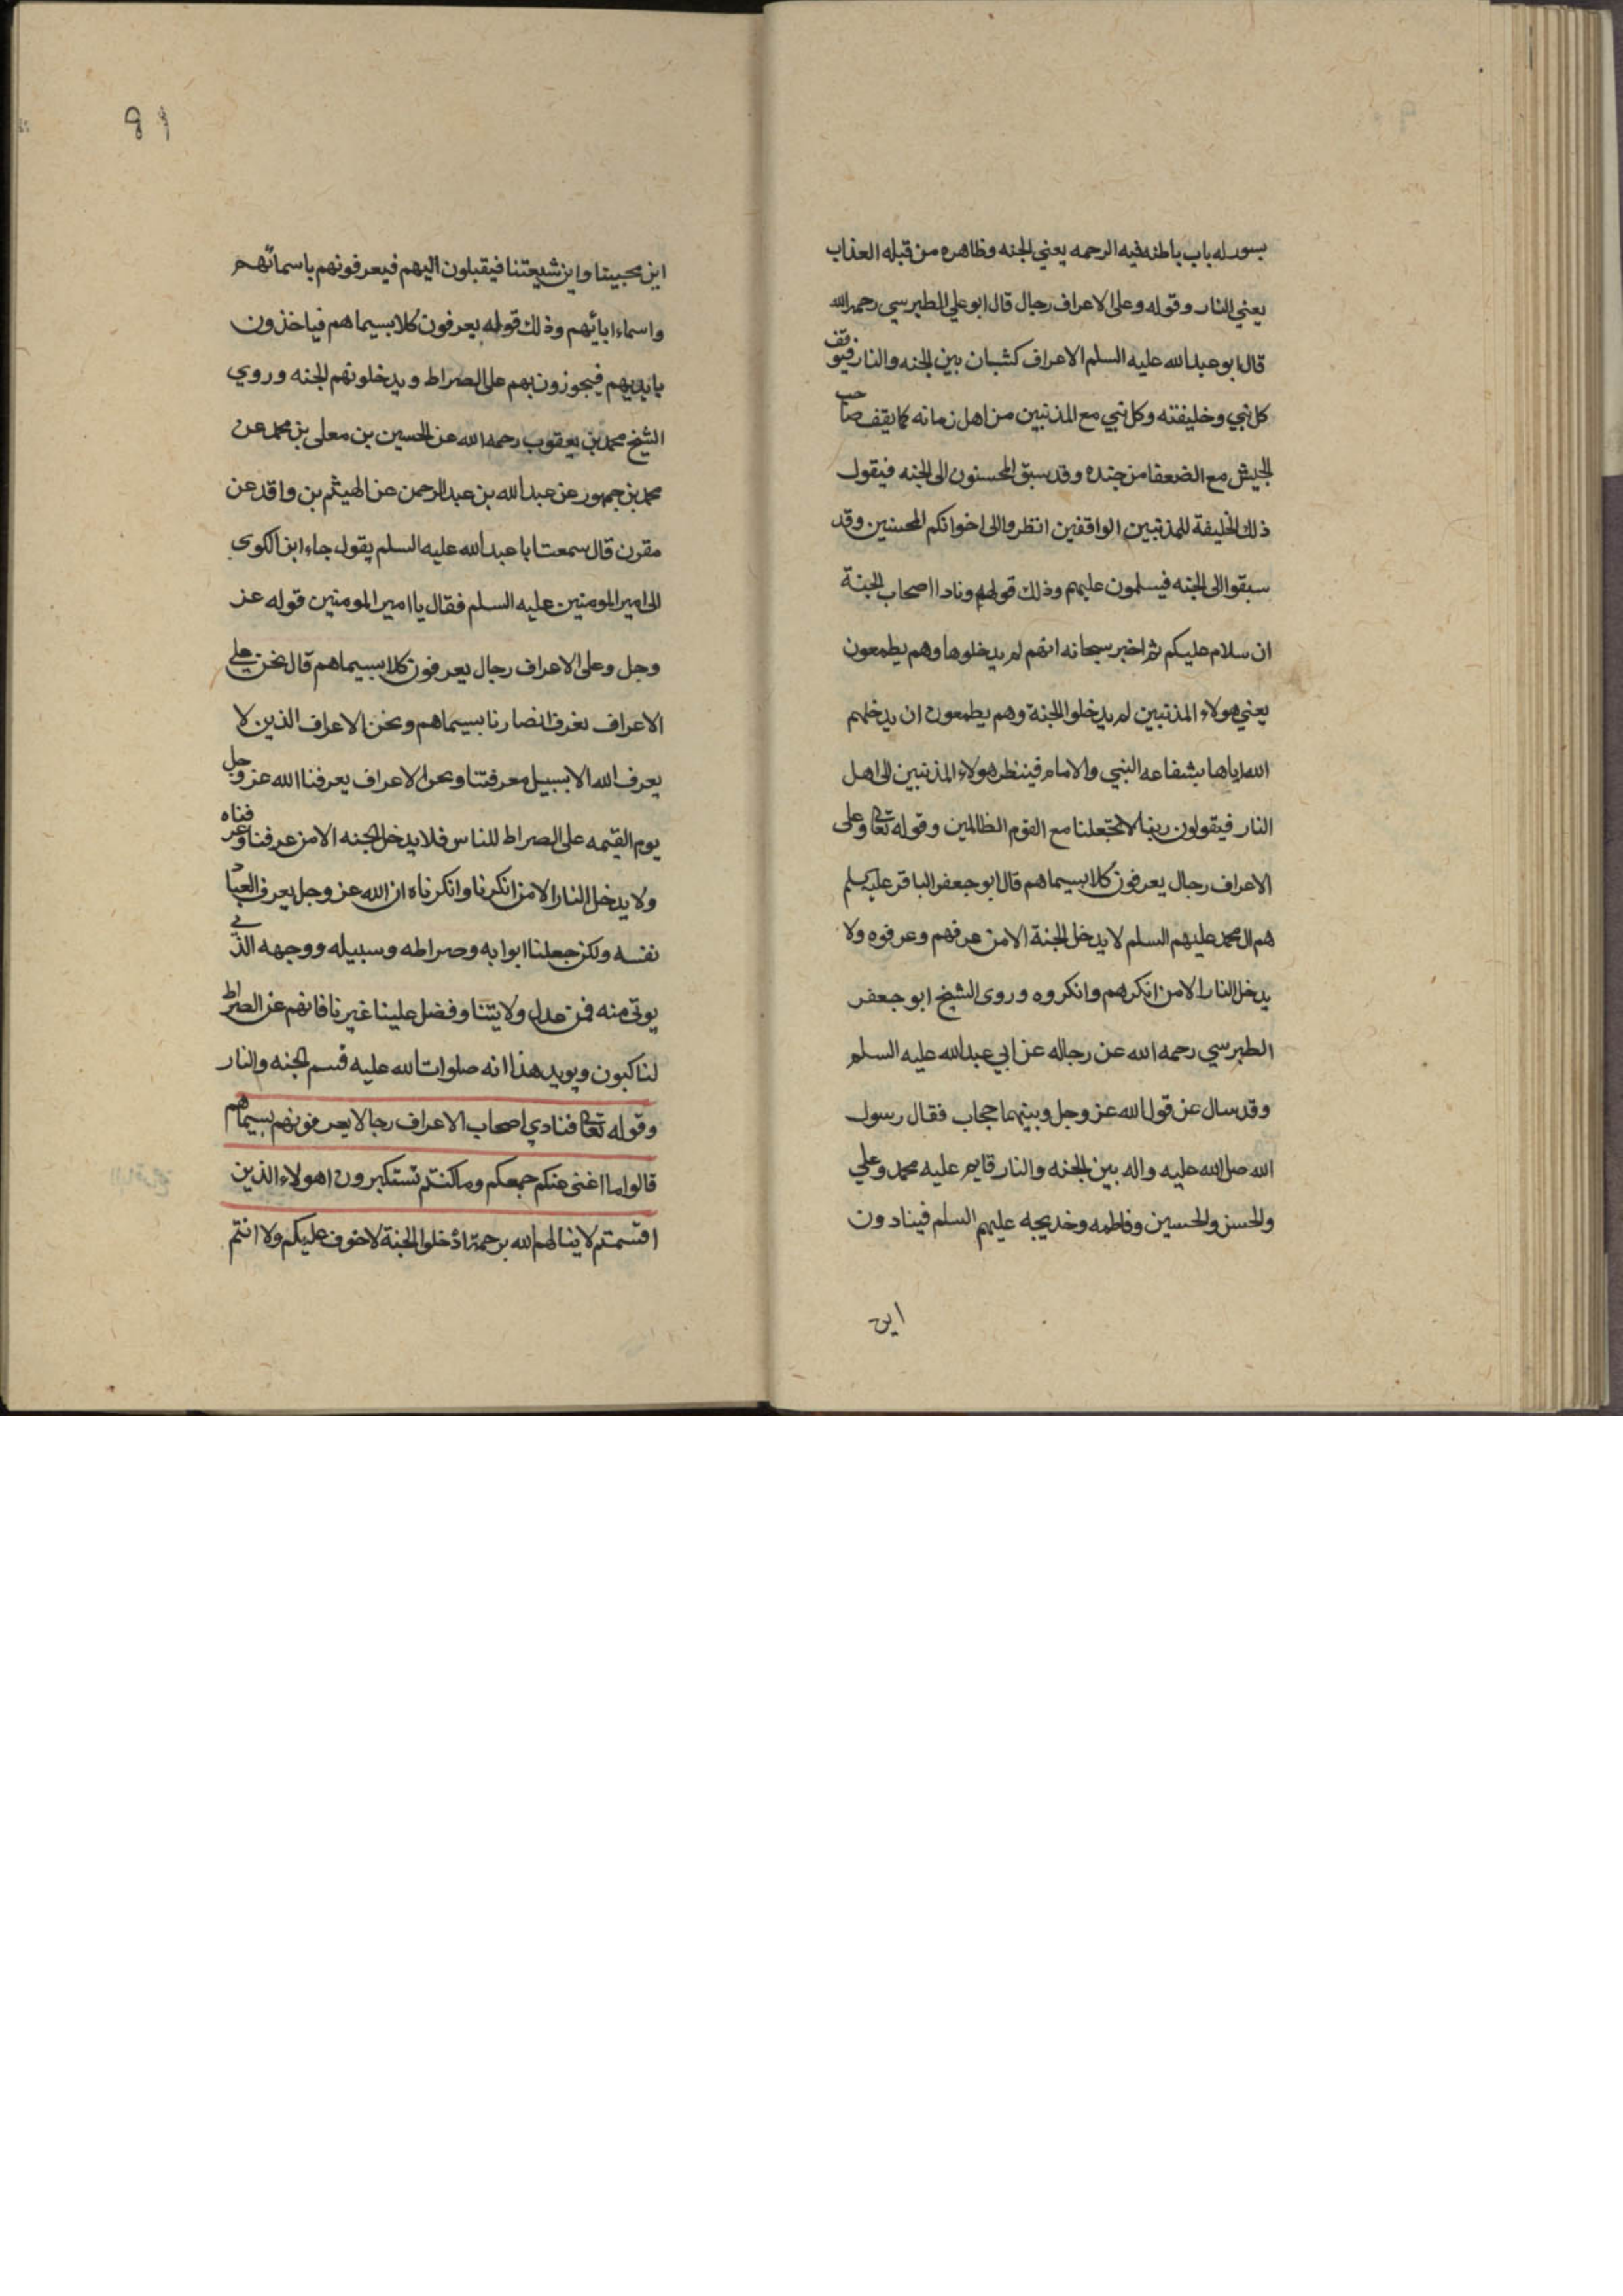 بسور له باب باطنه فيه الرحمه يعني الجنه وظاهره من قبله العذاب
يعني النار وقوله وعلى الاعراف رجال قال ابو علي الطبرسي رحمه الله
قال ابو عبد الله عليه السلم الاعراف كثبان بين الجنه والنار فيوقف
كل نبي وخليفته وكل نبي مع المذنبين من اهل زمانه كما يقف صاحب
الجيش مع الضعفا من جنده وقد سبق المحسنون الى الجنه فيقول
ذلك الخليفة للمذنبين الواقفين انظروا الى اخوانكم المحسنين وقد
سبقوا الى الجنه فيسلمون عليهم وذلك قوله ونادا اصحاب الجنة
ان سلام عليكم ثم اخبر سبحانه انهم لم يدخلوها وهم يطمعون
يعني هولاء المذنبين لم يدخلوا الجنة وهم يطمعون ان يدخلهم
الله اياها بشفاعه النبي والامام فينظر هولاء المذنبين الى اهل
النار فيقولون ربنا لا تجعلنا مع القوم الظالمين وقوله تعالى وعلى
الاعراف رجال يعرفون كلا بسيماهم قال ابو جعفر الباقر عليه السلم
هم ال محمد عليهم السلم لا يدخل الجنة الا من عرفهم وعرفوه ولا
يدخل النار الا من انكرهم وانكروه وروى الشيخ ابو جعفر
الطبرسي رحمه الله عن رجاله عن ابي عبد الله عليه السلم
وقد سال عن قول الله عز وجل وبينهما حجاب فقال رسول
الله صلى الله عليه واله بين الجنه والنار قايم عليه محمد وعلي
والحسن والحسين وفاطمه وخديجه عليهم السلم فينادون
اين
٩١
اين محبينا واين شيعتنا فيقبلون اليهم فيعرفونهم باسمائهم
واسماء ابائهم وذلك قوله يعرفون كلا بسيماهم فياخذون
بايديهم فيجوزون بهم على الصراط ويدخلونهم الجنه وروي
الشيخ محمد بن يعقوب رحمه الله عن الحسين بن معلى بن محمد عن
محمد بن جمهور عن عبد الله بن عبد الرحمن عن الهيثم بن واقد عن
مقرن قال سمعت ابا عبد الله عليه السلم يقول جاء ابن الكوى
الى امير المومنين عليه السلم فقال يا امير المومنين قوله عز
وجل وعلى الاعراف رجال يعرفون كلا بسيماهم قال نحن على
الاعراف نعرف انصارنا بسيماهم ونحن الاعراف الذين لا
يعرف الله الا بسبيل معرفتنا ونحن الاعراف يعرفنا الله عز وجل
يوم القيمه على الصراط للناس فلا يدخل الجنه الا من عرفنا وعرفناه
ولا يدخل النار الا من انكرنا وانكرناه ان الله عز وجل يعرف العباد
نفسه ولكن جعلنا ابوابه وصراطه وسبيله ووجهه الذي
يوتى منه فمن عدل ولايتنا وفضل علينا غيرنا فانهم عن الصراط
لناكبون ويويد هذا انه صلوات الله عليه قسم الجنه والنار
وقوله تعالى فنادي اصحاب الاعراف رجالا يعرفونهم بسيماهم
قالوا ما اغنى عنكم جمعكم وما كنتم تستكبرون اهولاء الذين
اقسمتم لا ينالهم الله برحمة ادخلوا الجنة لا خوف عليكم ولا انتم